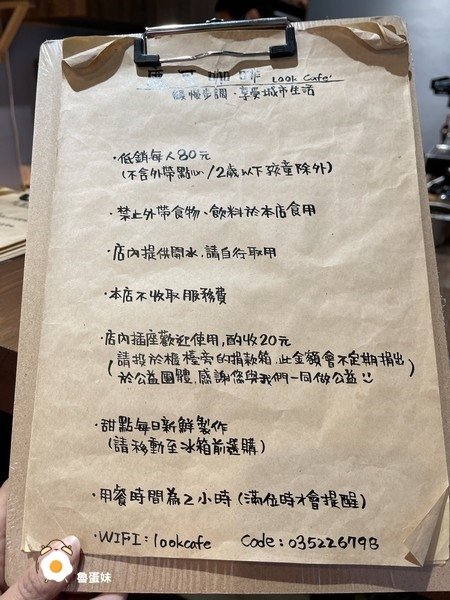 咖啡 Look Cafe'
緩慢步調．享受城市生活
·低銷每人80元
(不含外帶點心/2歲以下孩童除外)
·禁止外帶食物、飲料於本店食用
·店內提供開水,請自行取用
·本店不收取服務費
·店內插座歡迎使用,酌收20元
(請投於櫃檯旁的捐款箱,此金額會不定期捐出
於公益團體,感謝您與我們一同做公益)
·甜點每日新鮮製作
(請移動至冰箱前選購)
·用餐時間為2小時(滿位時才會提醒)
·WIFI:lookcafe Code:035226798
魯蛋妹